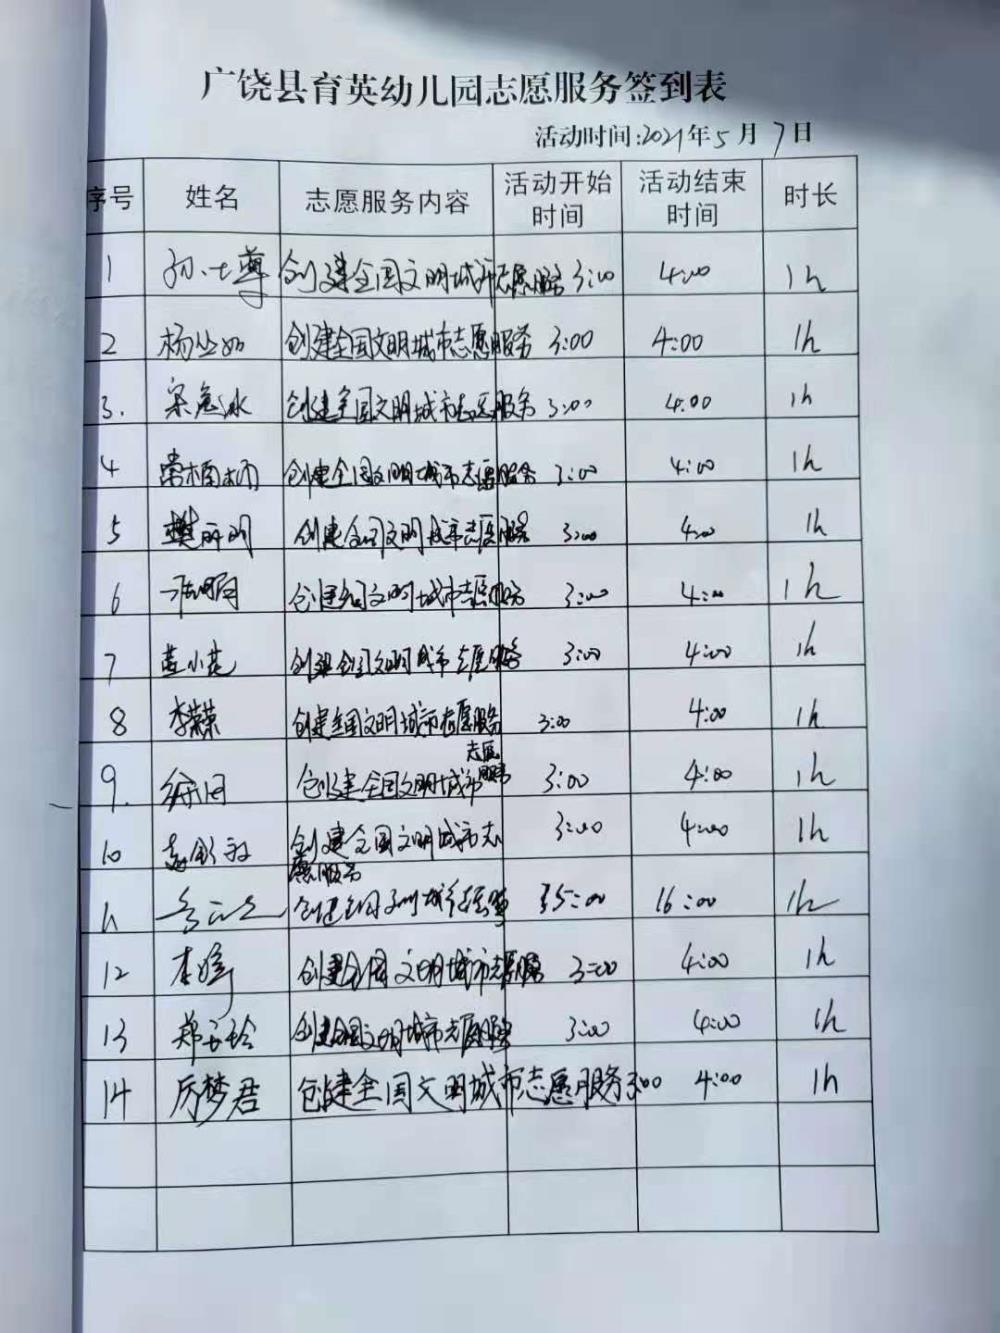 广饶县育英幼儿园志愿服务签到表
活动时间:2021年5月7日
序号 姓名 志愿服务内容 活动开始时间 活动结束时间 时长
1 创建全国文明城市志愿服务 3:00 4:00 1h
2 杨丛如 创建全国文明城市志愿服务 3:00 4:00 1h
3. 创建全国文明城市志愿服务 3:00 4:00 1h
4 常楠楠 创建全国文明城市志愿服务 3:00 4:00 1h
5 樊丽明 创建全国文明城市志愿服务 3:00 4:00 1h
6 创建全国文明城市志愿服务 3:00 4:00 1h
7 创建全国文明城市志愿服务 3:00 4:00 1h
8 李荣荣 创建全国文明城市志愿服务 3:00 4:00 1h
9. 创建全国文明城市志愿服务 3:00 4:00 1h
10 创建全国文明城市志愿服务 3:00 4:00 1h
11 创建全国文明城市志愿服务 15:00 16:00 1h
12 李婷 创建全国文明城市志愿服务 3:00 4:00 1h
13 郑玉玲 创建全国文明城市志愿服务 3:00 4:00 1h
14 厉梦君 创建全国文明城市志愿服务 3:00 4:00 1h